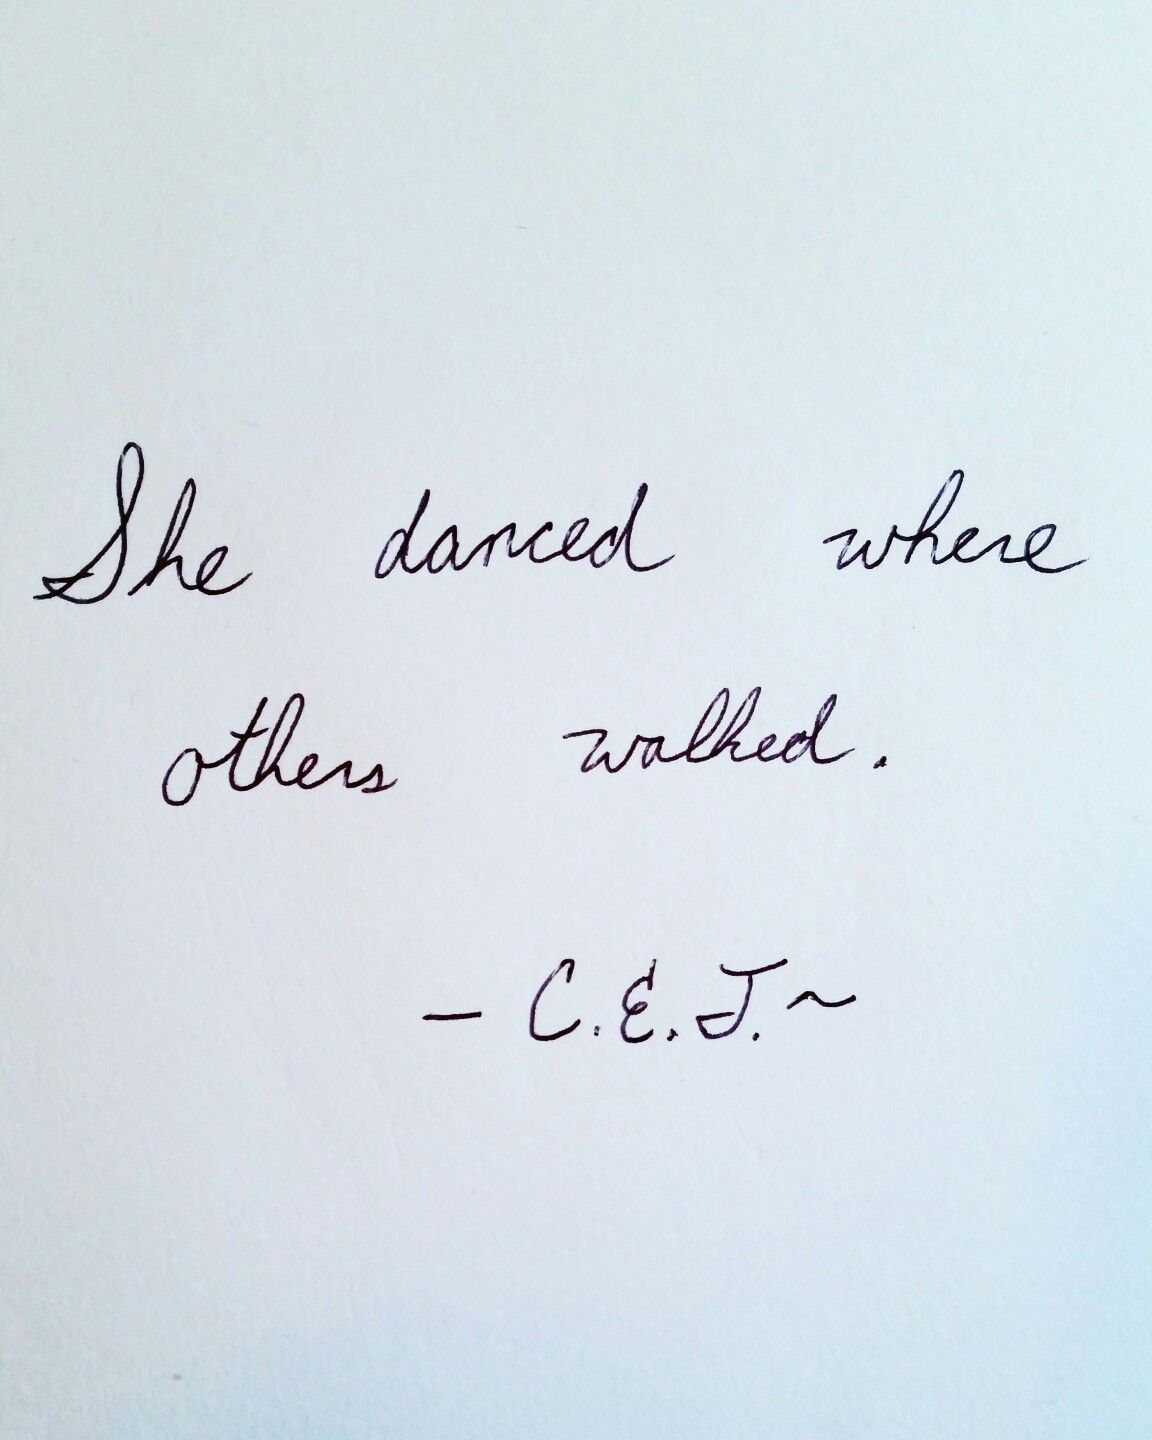 She danced where
others walked.
- C.E.J.~